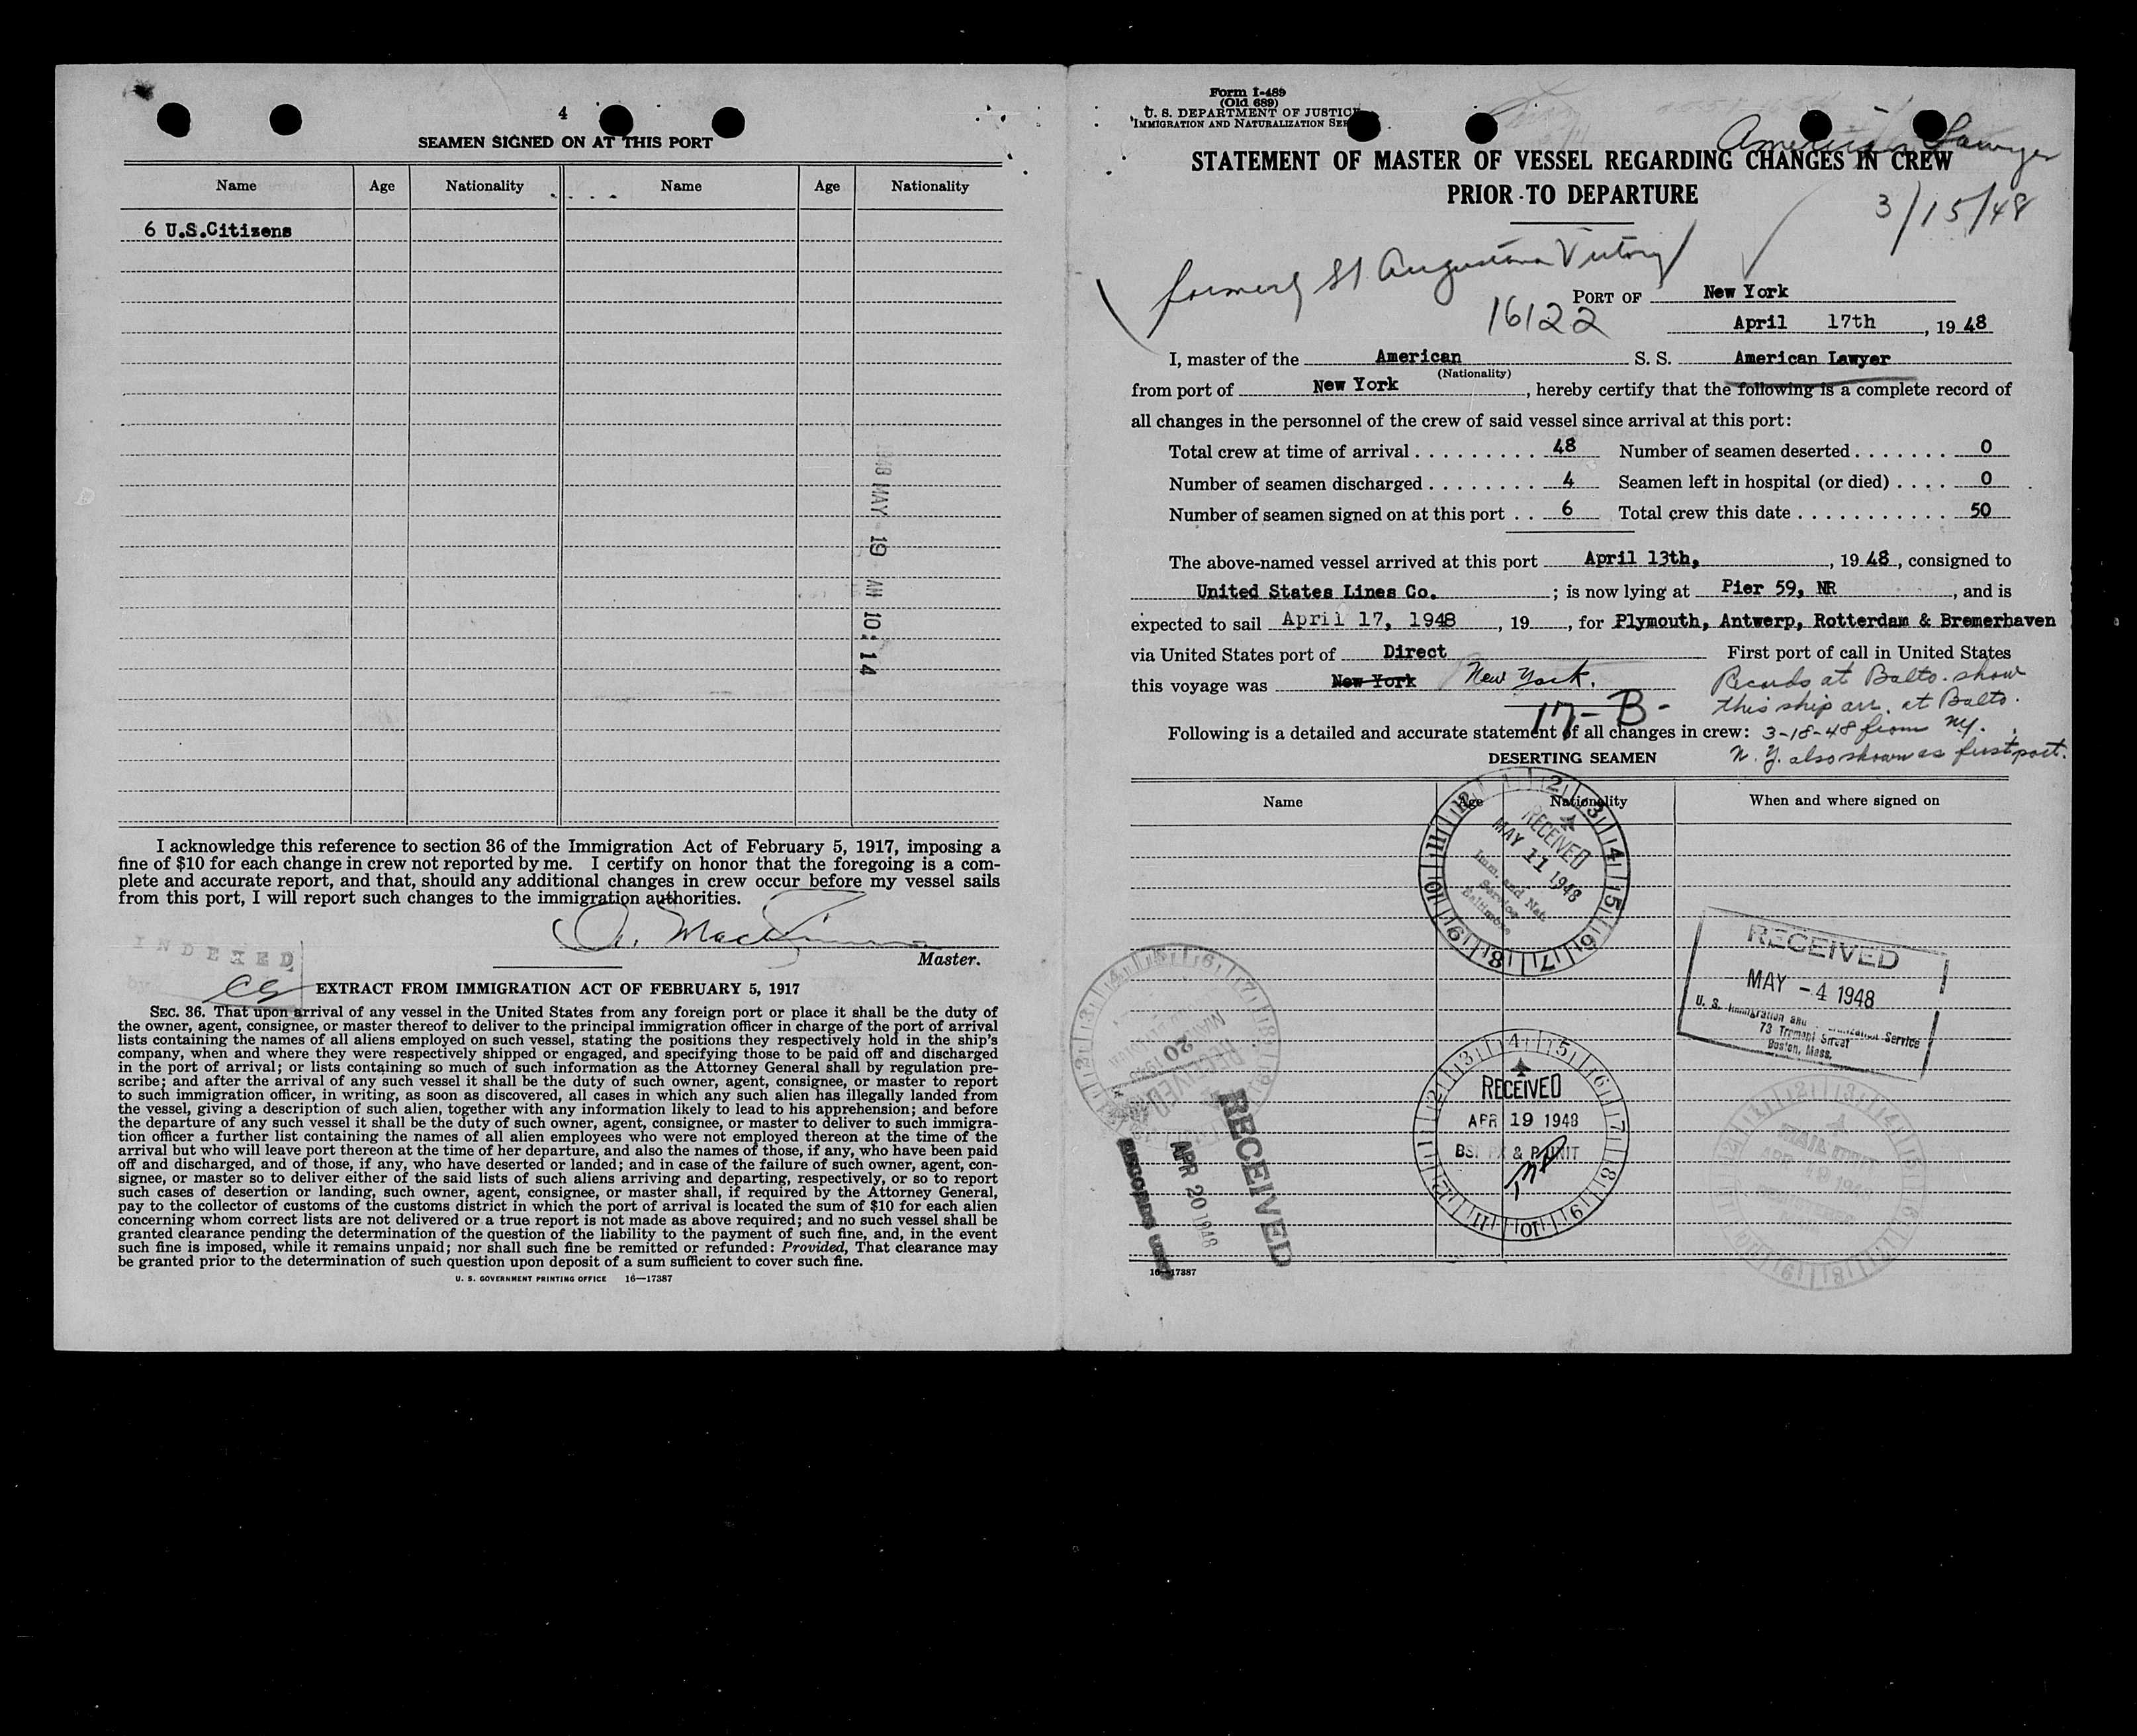 4
SEAMEN SIGNED ON AT THIS PORT
Name Age Nationality Name Age Nationality
6 U.S.Citizens
MAY 19 AM 10:14
I acknowledge this reference to section 36 of the Immigration Act of February 5, 1917, imposing a
fine of $10 for each change in crew not reported by me. I certify on honor that the foregoing is a com-
plete and accurate report, and that, should any additional changes in crew occur before my vessel sails
from this port, I will report such changes to the immigration authorities.
Master.
INDEXED
EXTRACT FROM IMMIGRATION ACT OF FEBRUARY 5, 1917
SEC. 36. That upon arrival of any vessel in the United States from any foreign port or place it shall be the duty of
the owner, agent, consignee, or master thereof to deliver to the principal immigration officer in charge of the port of arrival
lists containing the names of all aliens employed on such vessel, stating the positions they respectively hold in the ship's
company, when and where they were respectively shipped or engaged, and specifying those to be paid off and discharged
in the port of arrival; or lists containing so much of such information as the Attorney General shall by regulation pre-
scribe; and after the arrival of any such vessel it shall be the duty of such owner, agent, consignee, or master to report
to such immigration officer, in writing, as soon as discovered, all cases in which any such alien has illegally landed from
the vessel, giving a description of such alien, together with any information likely to lead to his apprehension; and before
the departure of any such vessel it shall be the duty of such owner, agent, consignee, or master to deliver to such immigra-
tion officer a further list containing the names of all alien employees who were not employed thereon at the time of the
arrival but who will leave port thereon at the time of her departure, and also the names of those, if any, who have been paid
off and discharged, and of those, if any, who have deserted or landed; and in case of the failure of such owner, agent, con-
signee, or master so to deliver either of the said lists of such aliens arriving and departing, respectively, or so to report
such cases of desertion or landing, such owner, agent, consignee, or master shall, if required by the Attorney General,
pay to the collector of customs of the customs district in which the port of arrival is located the sum of $10 for each alien
concerning whom correct lists are not delivered or a true report is not made as above required; and no such vessel shall be
granted clearance pending the determination of the question of the liability to the payment of such fine, and, in the event
such fine is imposed, while it remains unpaid; nor shall such fine be remitted or refunded: Provided, That clearance may
be granted prior to the determination of such question upon deposit of a sum sufficient to cover such fine.
U. S. GOVERNMENT PRINTING OFFICE 16—17387
Form I-489
(Old 689)
U. S. DEPARTMENT OF JUSTICE
IMMIGRATION AND NATURALIZATION SER
American Lawyer
STATEMENT OF MASTER OF VESSEL REGARDING CHANGES IN CREW
PRIOR TO DEPARTURE
3/15/48
formerly St Augustine Victory
PORT OF New York
16122
April 17th, 1948
I, master of the American S. S. American Lawyer
(Nationality)
from port of New York, hereby certify that the following is a complete record of
all changes in the personnel of the crew of said vessel since arrival at this port:
Total crew at time of arrival . . . . . . . . . 48 Number of seamen deserted . . . . . . . 0
Number of seamen discharged . . . . . . . . 4 Seamen left in hospital (or died) . . . . 0
Number of seamen signed on at this port . . 6 Total crew this date . . . . . . . . . . . 50
The above-named vessel arrived at this port April 13th, , 19 48, consigned to
United States Lines Co. ; is now lying at Pier 59, NR , and is
expected to sail April 17, 1948 , 19 , for Plymouth, Antwerp, Rotterdam & Bremerhaven
via United States port of Direct First port of call in United States
this voyage was New York New York.
Records at Balto. show
this ship arr. at Balto.
3-18-48 from NY.
N. Y. also shown as first port.
17-B-
Following is a detailed and accurate statement of all changes in crew:
DESERTING SEAMEN
Name Age Nationality When and where signed on
RECEIVED
MAY 11 1948
Imm. and Nat.
Service
Baltimore
RECEIVED
MAY -4 1948
U. S. Immigration and Service
73 Tremont Street
Boston, Mass.
RECEIVED
MAY 20
RECEIVED
APR 19 1948
& P UNIT
RECEIVED
APR 20 1948
RECORDS UNIT
MAIL UNIT
APR 19 1948
16—17387